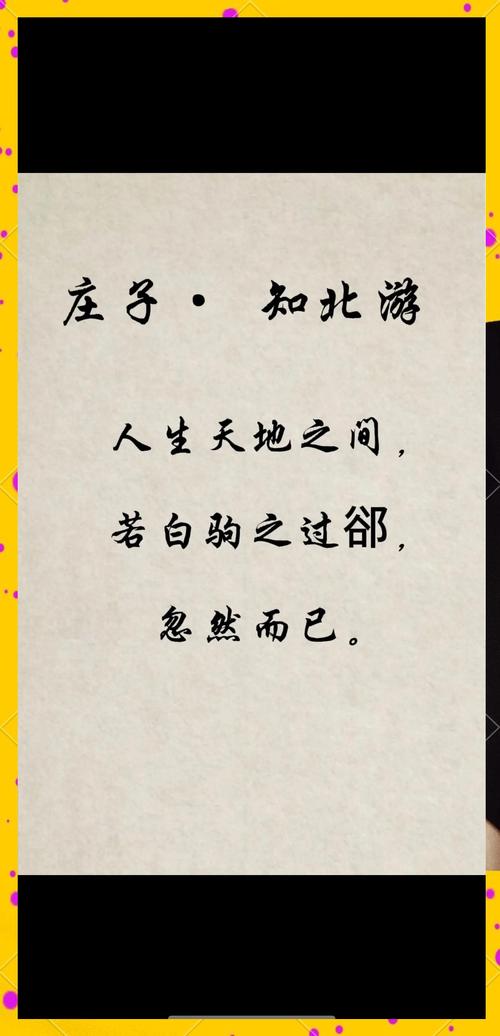 庄子· 知北游
人生天地之间，
若白驹之过郤，
忽然而已。